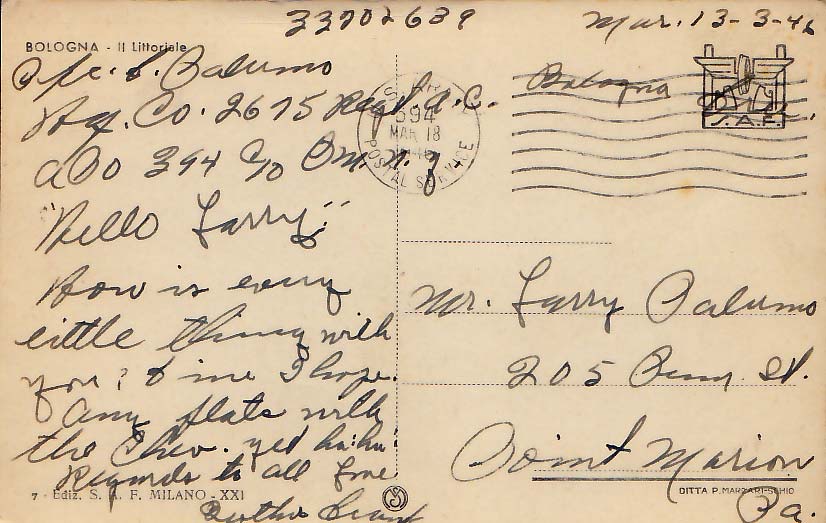 33702639
Mar. 13-3-46
BOLOGNA - Il Littoriale
Pfc. L. Palumo
Bologna
Hq. Co. 2675 Regt A.C.
S.A.F.
APO 394 c/o P.M. N.Y.
594
MAR 18
POSTAL SERVICE
"Hello Larry":
How is every
little thing with
you? & me I hope.
Any flats with
the Chev. yet ha! ha!
Regards to all Love
Mr. Larry Palumo
205 Penn St.
Point Marion
Pa.
7 - Ediz. S. A. F. MILANO - XXI
DITTA P. MARZARI-SCHIO